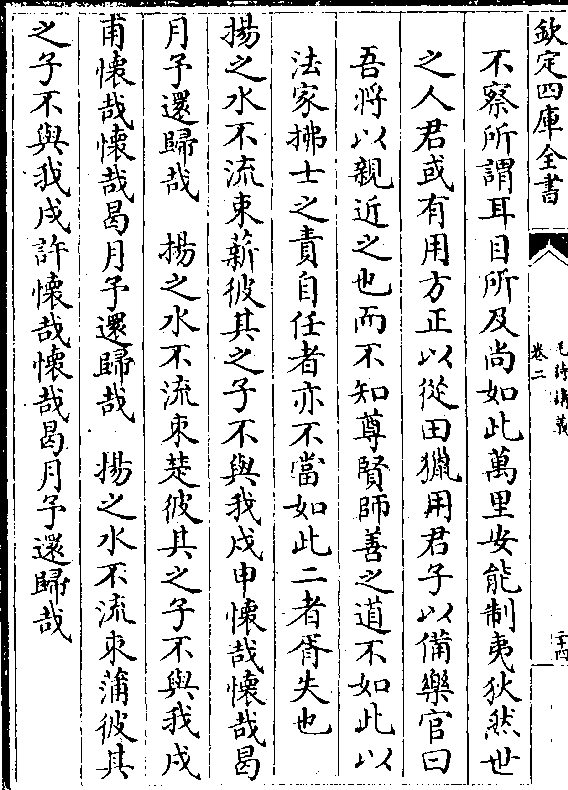 欽定四庫全書
毛詩講義
卷二
二十四
不察所謂耳目所及尚如此萬里安能制夷狄然世
之人君或有用方正以從田獵用君子以備樂官曰
吾將以親近之也而不知尊賢師善之道不如此以
法家拂士之責自任者亦不當如此二者胥失也
揚之水不流束薪彼其之子不與我戍申懷哉懷哉曷
月予還歸哉　揚之水不流束楚彼其之子不與我戍
甫懷哉懷哉曷月予還歸哉　揚之水不流束蒲彼其
之子不與我戍許懷哉懷哉曷月予還歸哉